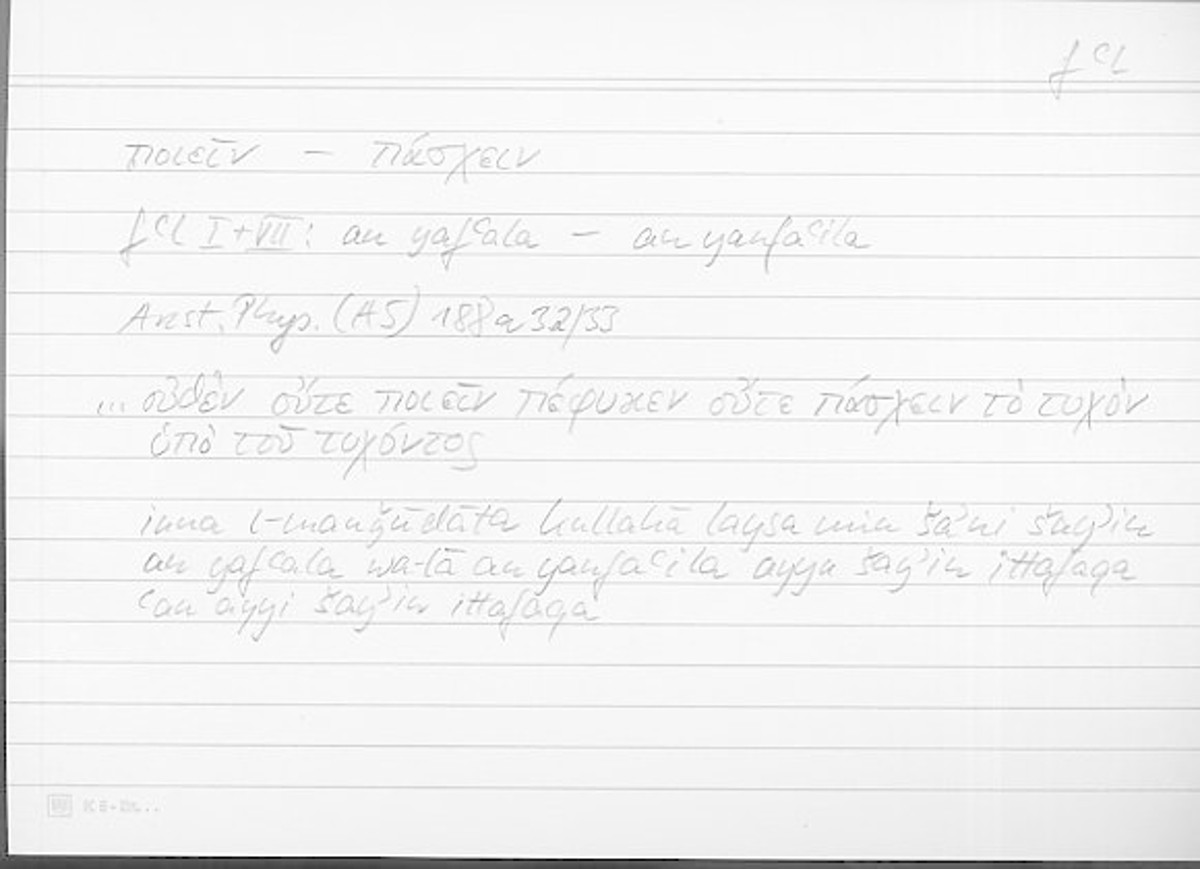 fʿl
ποιεῖν – πάσχειν
fʿl I+VII: an yafʿala – an yanfaʿila
Arist. Phys. (A5) 188a32/33
... οὐθὲν οὔτε ποιεῖν πέφυκεν οὔτε πάσχειν τὸ τυχὸν
ὑπὸ τοῦ τυχόντος
inna l-manǧūdāta kullahā laysa min šaʾni šayʾin
an yafʿala wa-lā an yanfaʿila ayyu šayʾin ittafaqa
ʿan ayyi šayʾin ittafaqa